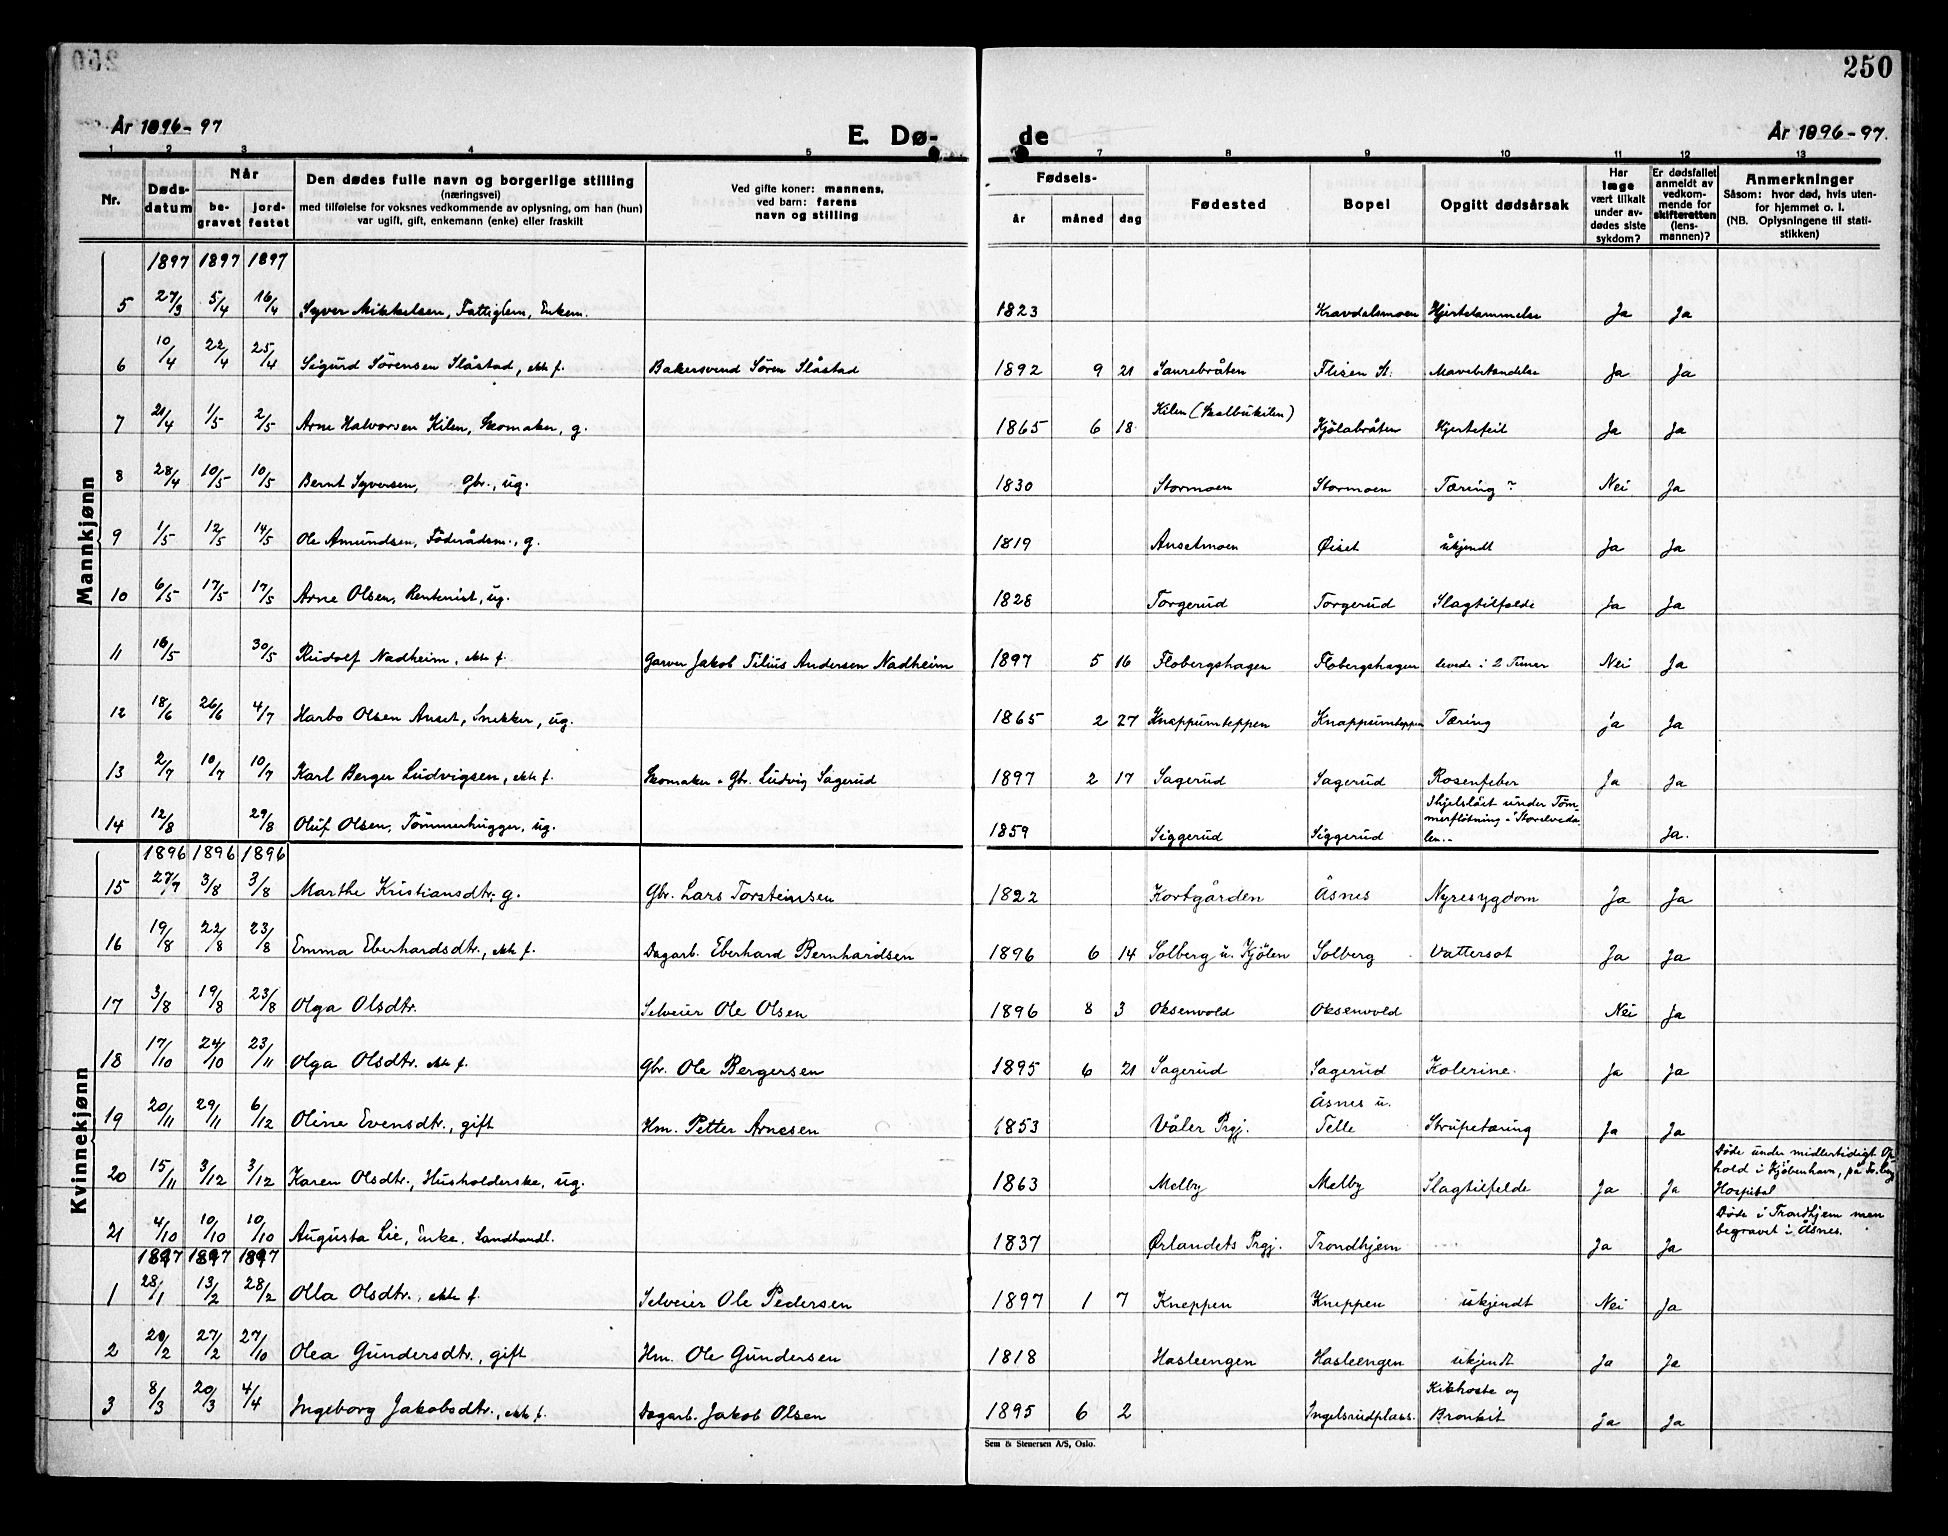 250
År 1896-97
E. Dø-
de
År 1896-97.
1 2 3 4 5 7 8 9 10 11 12 13
Nr.
Døds-
datum
Når
be-
gravet
jord-
festet
Den dødes fulle navn og borgerlige stilling
(næringsvei)
med tilføielse for voksnes vedkommende av oplysning, om han (hun)
var ugift, gift, enkemann (enke) eller fraskilt
Ved gifte koner: mannens,
ved barn: farens
navn og stilling
Fødsels-
år måned dag
Fødested
Bopel
Opgitt dødsårsak
Har
læge
vært tilkalt
under av-
dødes siste
sykdom?
Er dødsfallet
anmeldt av
vedkom-
mende for
skifteretten
(lens-
mannen)?
Anmerkninger
Såsom: hvor død, hvis uten-
for hjemmet o. l.
(NB. Oplysningene til stati-
stikken)
Mannkjønn
1897 1897 1897
5 27/3 5/4 16/4 Syver Mikkelsen, Fattiglem, Enkem. 1823 Kravdalsmoen Hjertelammelse Ja Ja
6 10/4 22/4 25/4 Sigurd Sörensen Slåstad, ekte f. Bakersvend Sören Slåstad 1892 9 21 Saurebråten Flisen St. Mavebetendelse Ja Ja
7 21/4 1/5 2/5 Arne Halvorsen Kilen, Skomaker, g. 1865 6 18 Kilen (Skalbukilen) Kjölabråten Hjertefeil Ja Ja
8 28/4 10/5 10/5 Bernt Syversen, Gbr., ug. 1830 Stormoen Stormoen Tæring? Nei Ja
9 1/5 12/5 14/5 Ole Amundsen, Föderådsm., g. 1819 Anselmoen Øiset ukjendt Ja Ja
10 6/5 17/5 17/5 Arne Olsen, Rentenist, ug. 1828 Torgerud Torgerud Slagtilfælde Ja Ja
11 16/5 30/5 Rudolf Nadheim, ekte f. Garver Jakob Tilius Andersen Nadheim 1897 5 16 Flobergshagen Flobergshagen levede i 2 Timer Nei Ja
12 18/6 26/6 4/7 Harbo Olsen Anset, Snekker, ug. 1865 2 27 Knappumteppen Knappumteppen Tæring Ja Ja
13 2/7 10/7 10/7 Karl Berger Ludvigsen, ekte f. Skomaker - Gbr. Ludvig Sagerud 1897 2 17 Sagerud Sagerud Rosenfeber Ja Ja
14 12/8 29/8 Oluf Olsen, Tömmerhugger, ug. 1859 Siggerud Siggerud Ihjelslåt under Töm-
merflötning i Storelveda-
len.- Ja.
Kvinnekjønn
1896 1896 1896
15 27/7 3/8 3/8 Marthe Kristiansdtr, g. Gbr. Lars Torsteinsen 1822 Kortgården Åsnes Nyresygdom Ja Ja
16 19/8 22/8 23/8 Emma Eberhardsdtr., ekte f. Dagarb. Eberhard Bernhardsen 1896 6 14 Solberg u. Kjölen Solberg Vattersot Ja Ja
17 3/8 19/8 23/8 Olga Olsdtr. Selveier Ole Olsen 1896 8 3 Oksenvold Oksenvold Nei Ja
18 17/10 24/10 23/11 Olga Olsdtr. ekte f. Gbr. Ole Bergersen 1895 6 21 Sagerud Sagerud Kolerine. Ja Ja
19 20/11 29/11 6/12 Oline Evensdtr., gift Hm. Petter Arnesen 1853 Våler Prgj. Åsnes u.
Telle Strupetæring Ja Ja
20 15/11 3/12 3/12 Karen Olsdtr., Husholderske, ug. 1863 Melby Melby Slagtilfelde Ja Ja Døde under midlertidigt Op-
hold i Kjöbenhavn, på
Hospital
21 4/10 10/10 10/10 Augusta Lie, Enke, Landhandl. 1837 Ørlandets Prgj. Trondhjem Ja Ja Døde i Trondhjem men
begravet i Åsnes.
1897 1897 1897
1 28/1 13/2 28/2 Olla Olsdtr., ekte f. Selveier Ole Pedersen 1897 1 7 Kneppen Kneppen ukjendt Nei Ja
2 20/2 27/2 27/10 Olea Gundersdtr., gift Hm. Ole Gundersen 1818 Hasleengen Hasleengen ukjendt Ja Ja
3 8/3 20/3 4/4 Ingeborg Jakobsdtr., ekte f. Dagarb. Jakob Olsen 1895 6 2 Ingelsrudplass. Kikhoste og
Bronkit Ja Ja
Sem & Stenersen A/S, Oslo.